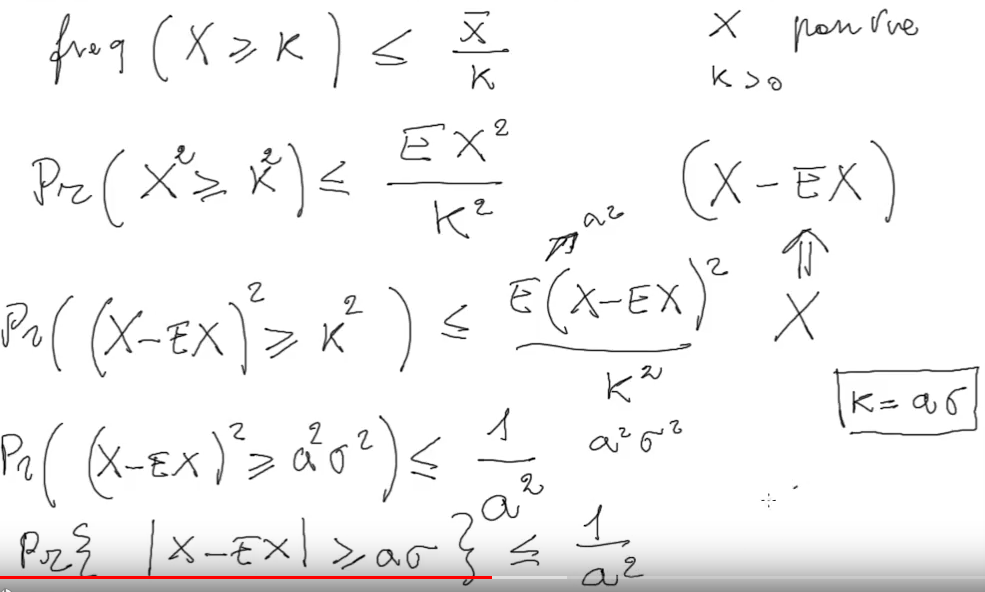 freq (X ⩾ K) ≤ X̄/K
X positive
K > 0
Pr(X² ⩾ K²) ≤ EX²/K²
(X - EX)
⇑
X
Pr((X-EX)² ⩾ K²) ≤ E(X-EX)²/K²
K = aσ
Pr((X-EX)² ⩾ a²σ²) ≤ 1/a²
a²σ²
Pr{ |X-EX| ⩾ aσ } ≤ 1/a²